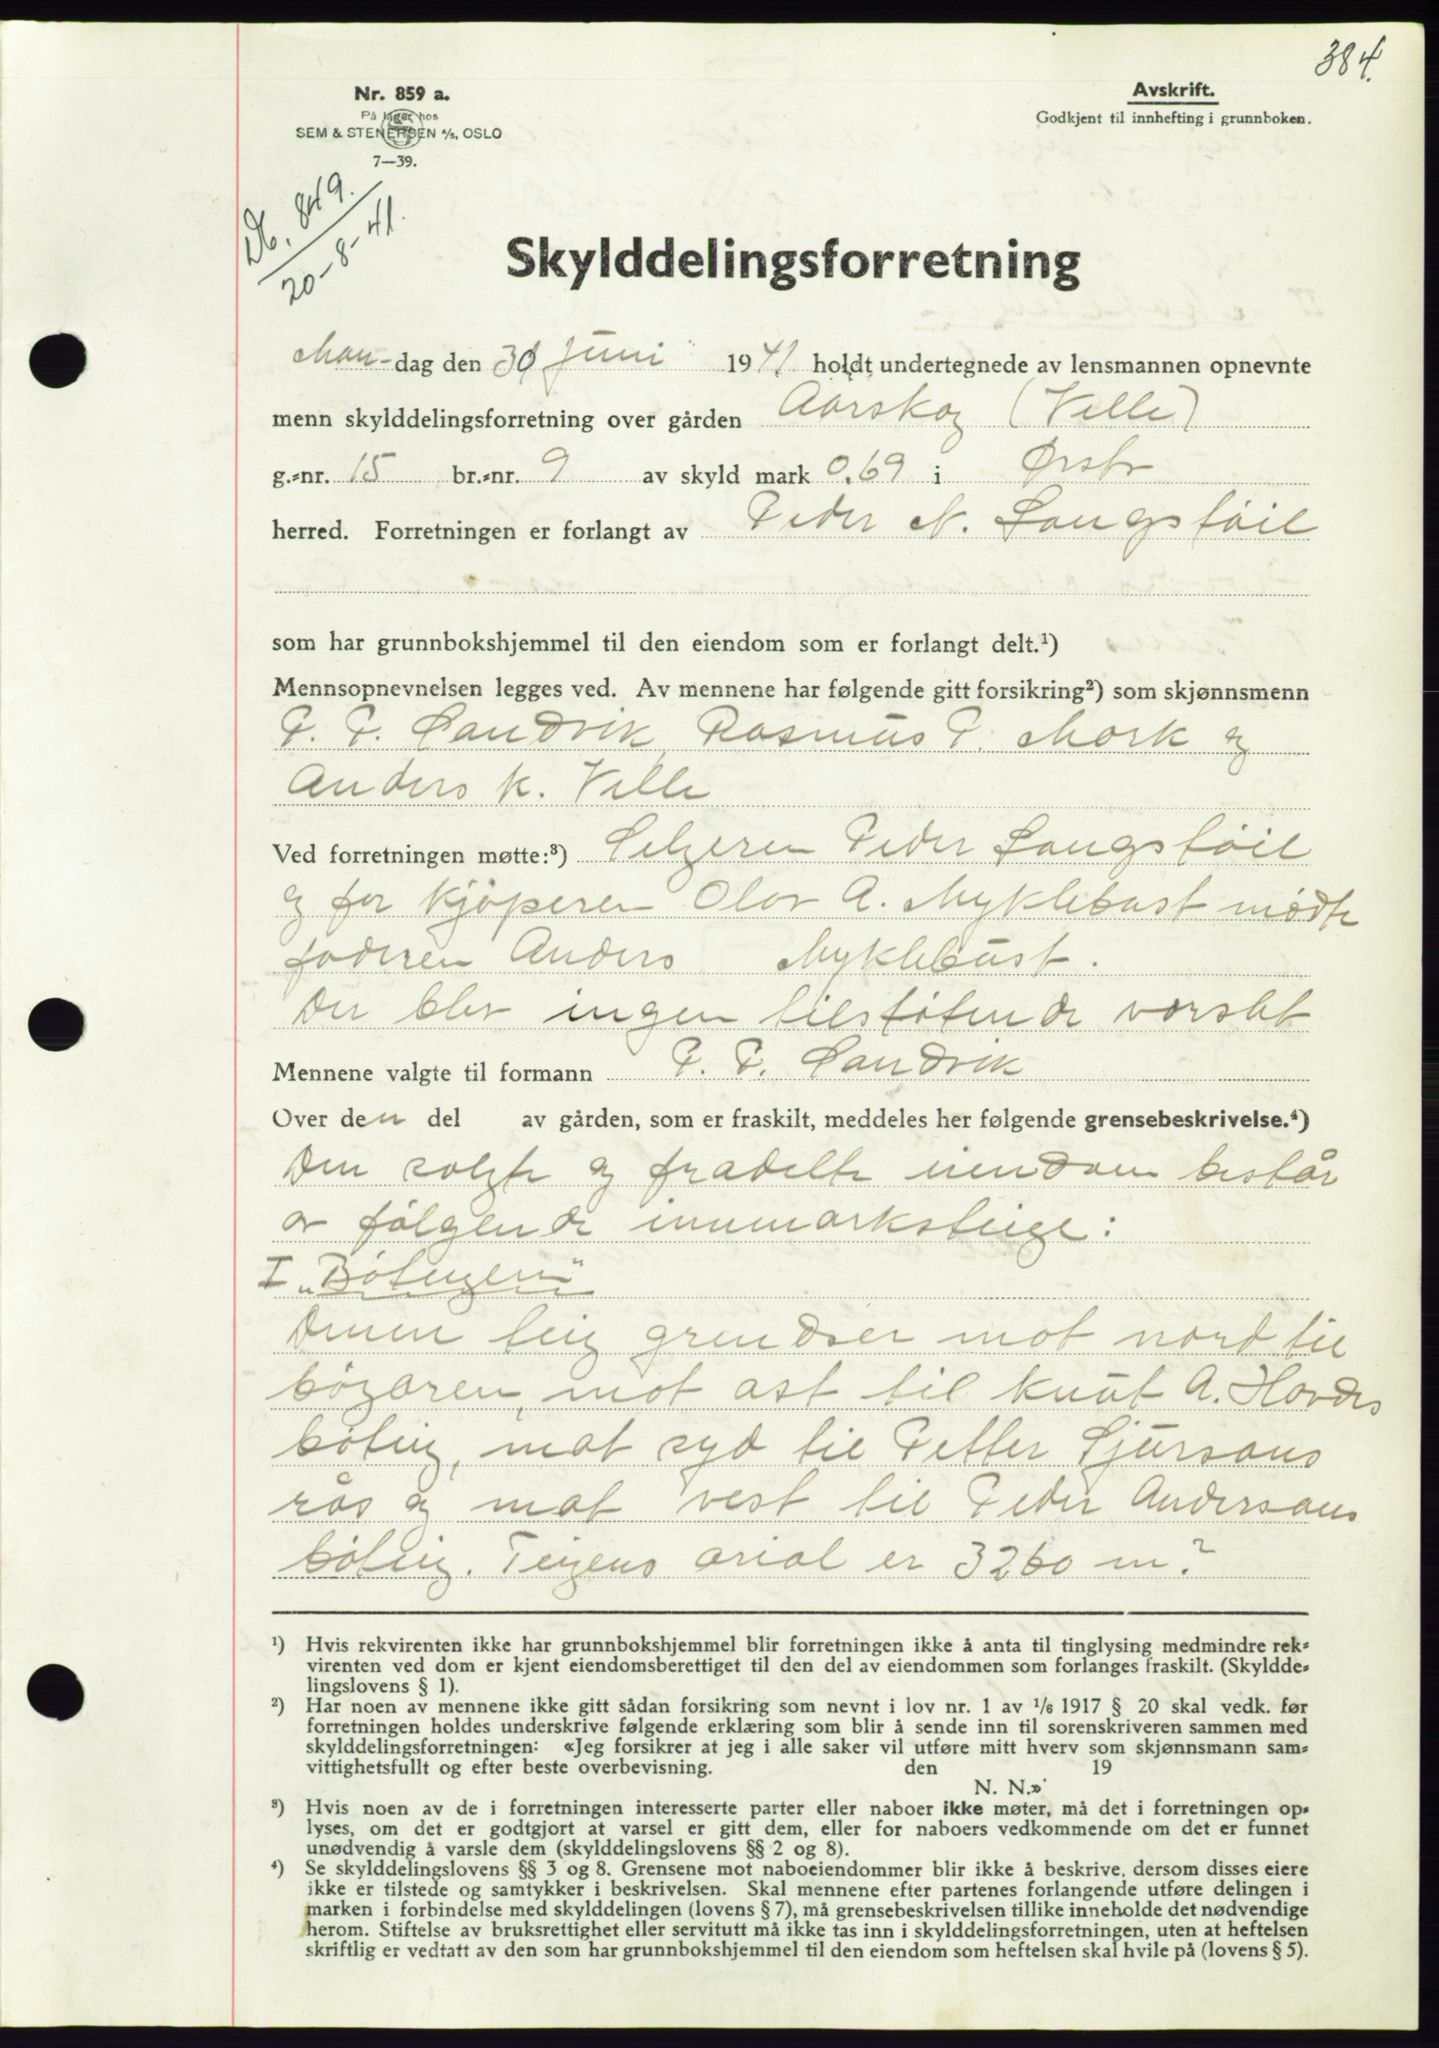 384.
Nr. 859 a.
På lager hos
SEM & STENERSEN A/S, OSLO
7—39.
Avskrift.
Godkjent til innhefting i grunnboken.
Db. 849.
20-8-41.
Skylddelingsforretning
Man-dag den 30 juni 1941 holdt undertegnede av lensmannen opnevnte
menn skylddelingsforretning over gården Aarskog (Velle)
g.-nr. 15 br.-nr. 9 av skyld mark 0.69 i Ørsta
herred. Forretningen er forlangt av Peder N. Langstöil
som har grunnbokshjemmel til den eiendom som er forlangt delt.¹)
Mennsopnevnelsen legges ved. Av mennene har følgende gitt forsikring²) som skjønnsmenn
P. P. Sandvik, Rasmus P. Mork og
Anders K. Velle
Ved forretningen møtte:³) Selgeren Peder Langstöil
og for kjöperen Olav A. Myklebust mødte
faderen Anders Myklebust.
Der blev ingen tilstötende varslet
Mennene valgte til formann P. P. Sandvik
Over den del av gården, som er fraskilt, meddeles her følgende grensebeskrivelse.⁴)
Den solgte og fradelte eiendom består
av følgende innmarksteige:
I „Böteigen"
Denne teig grendser mot nord til
bögaren, mot ost til Knut A. Hovdes
böteig, mot syd til Petter Sjursons
rås og mot vest til Peder Andersons
böteig. Teigens arial er 3260 m.²
¹) Hvis rekvirenten ikke har grunnbokshjemmel blir forretningen ikke å anta til tinglysing medmindre rek-
virenten ved dom er kjent eiendomsberettiget til den del av eiendommen som forlanges fraskilt. (Skyldde-
lingslovens § 1).
²) Har noen av mennene ikke gitt sådan forsikring som nevnt i lov nr. 1 av ¹/₆ 1917 § 20 skal vedk. før
forretningen holdes underskrive følgende erklæring som blir å sende inn til sorenskriveren sammen med
skylddelingsforretningen: «Jeg forsikrer at jeg i alle saker vil utføre mitt hverv som skjønnsmann sam-
vittighetsfullt og efter beste overbevisning. den 19
N. N.»
³) Hvis noen av de i forretningen interesserte parter eller naboer ikke møter, må det i forretningen op-
lyses, om det er godtgjort at varsel er gitt dem, eller for naboers vedkommende om det er funnet
unødvendig å varsle dem (skylddelingslovens §§ 2 og 8).
⁴) Se skylddelingslovens §§ 3 og 8. Grensene mot naboeiendommer blir ikke å beskrive, dersom disses eiere
ikke er tilstede og samtykker i beskrivelsen. Skal mennene efter partenes forlangende utføre delingen i
marken i forbindelse med skylddelingen (lovens § 7), må grensebeskrivelsen tillike inneholde det nødvendige
herom. Stiftelse av bruksrettighet eller servitutt må ikke tas inn i skylddelingsforretningen, uten at heftelsen
skriftlig er vedtatt av den som har grunnbokshjemmel til den eiendom som heftelsen skal hvile på (lovens § 5).